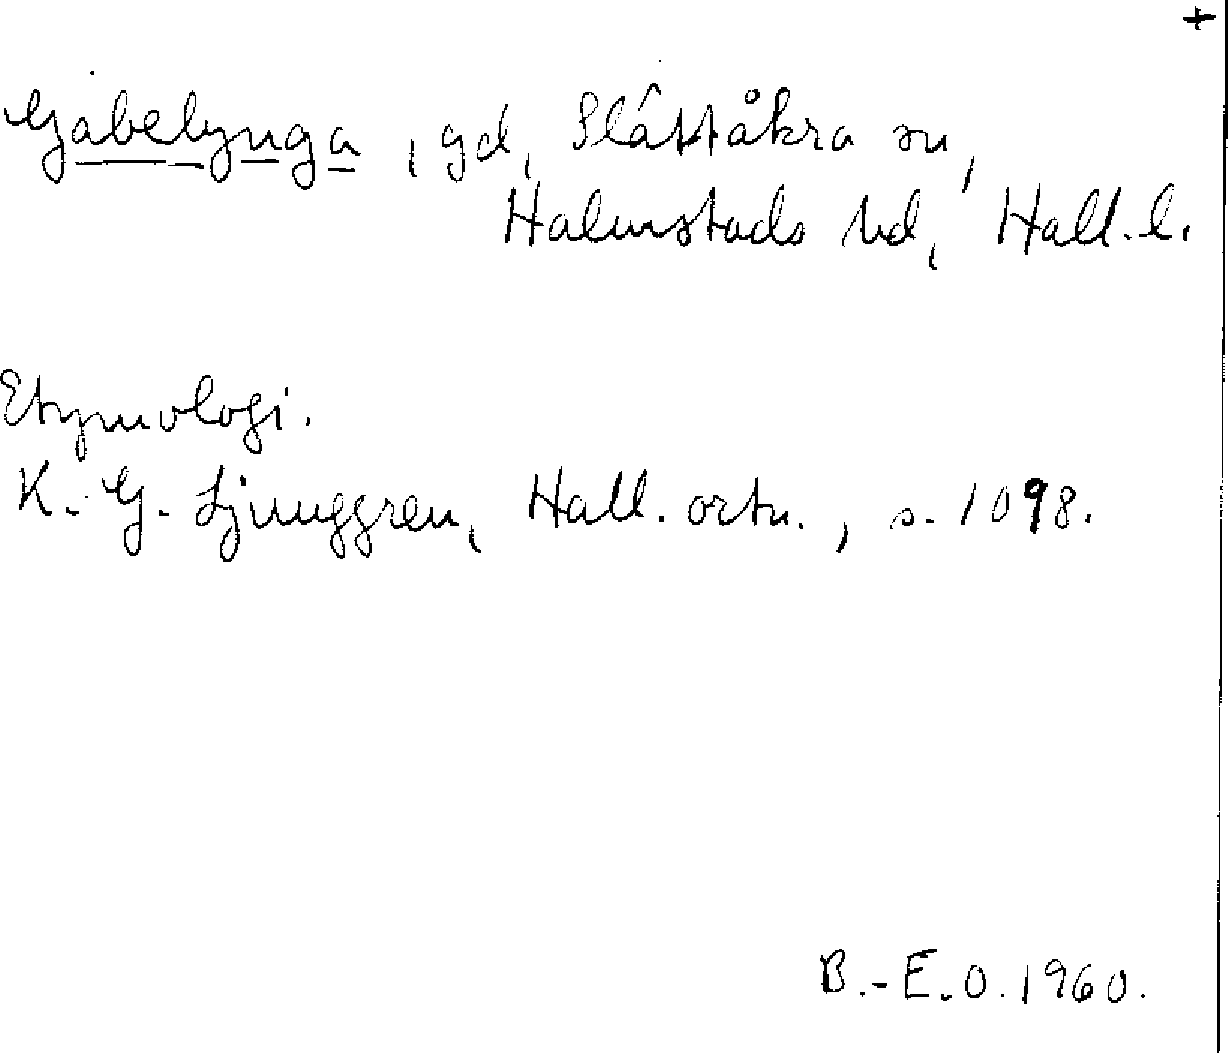 +
Gabelynga, gd, Slättåkra sn,
Halmstads hd, Hall. l.
Etymologi.
K. G. Ljunggren, Hall. ortn., s. 1098.
B.-E.O. 1960.